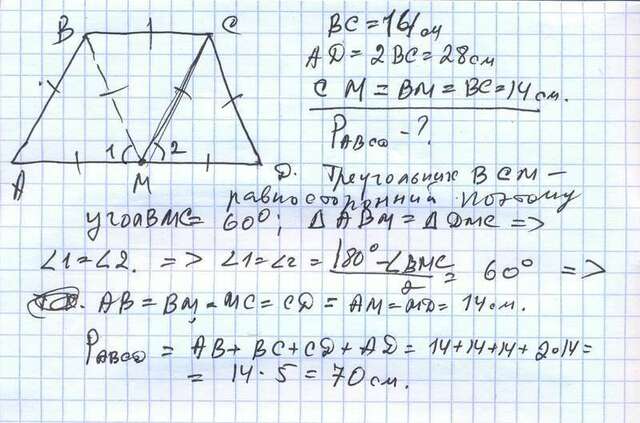 B C
BC = 14 см
AD = 2BC = 28 см
CM = BM = BC = 14 см.
P ABCD - ?
1 2
A M D.
Треугольник BCM –
равносторонний Поэтому
угол BMC = 60°; Δ ABM = Δ DMC =>
∠1 = ∠2. => ∠1 = ∠2 = 180° - ∠BMC / 2 = 60° =>
AB = BM = MC = CD = AM = MD = 14 см.
P ABCD = AB + BC + CD + AD = 14 + 14 + 14 + 2·14 =
= 14 · 5 = 70 см.